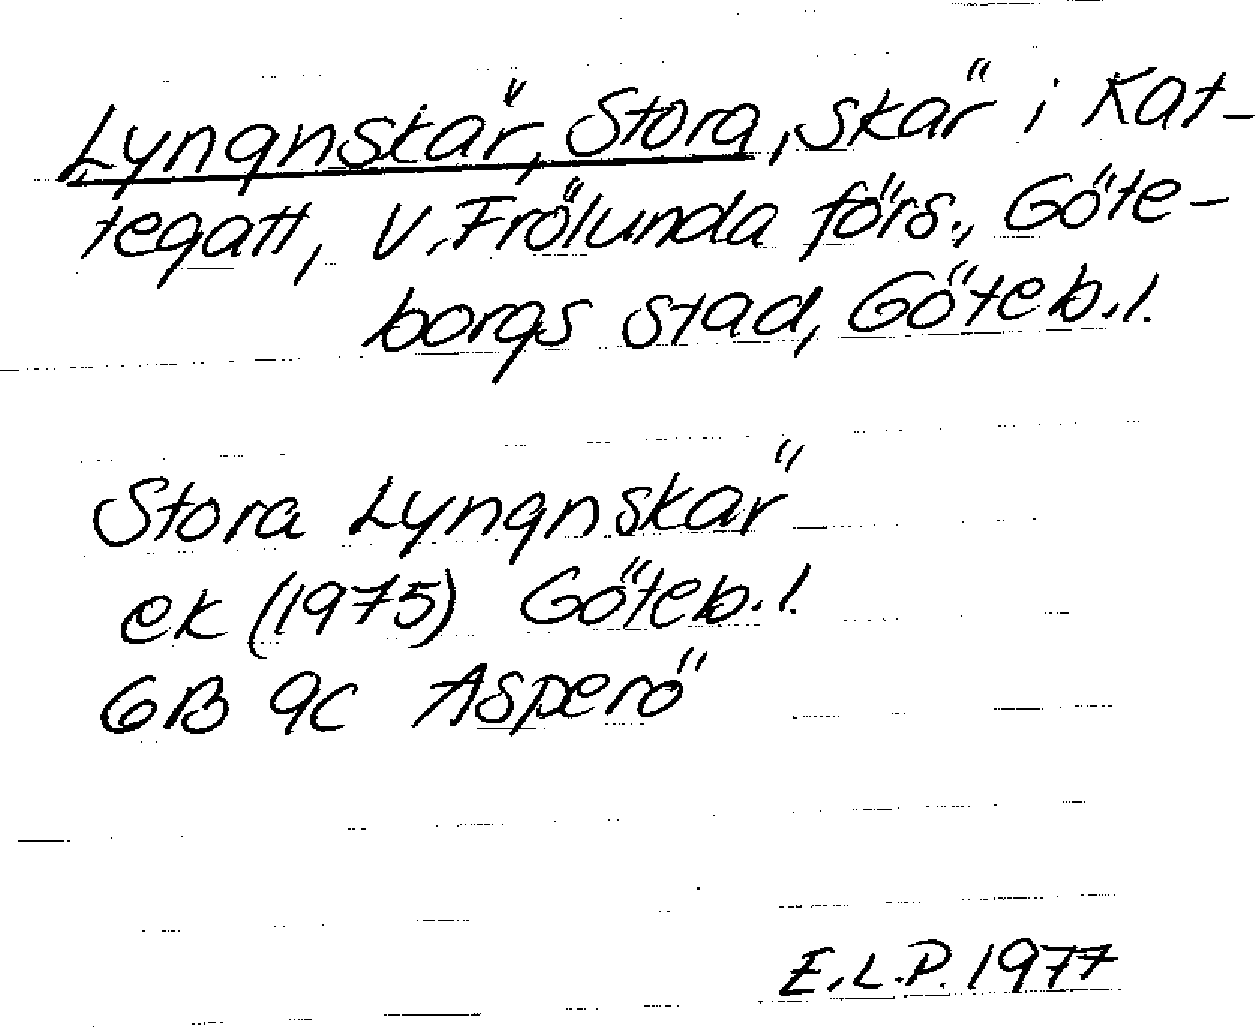 Lyngnskär, Stora, skär i Kat-
tegatt, V. Frölunda förs., Göte-
borgs stad, Göteb.l.
Stora Lyngnskär
ek (1975) Göteb.l.
6B 9c Asperö
E.L.P. 1977